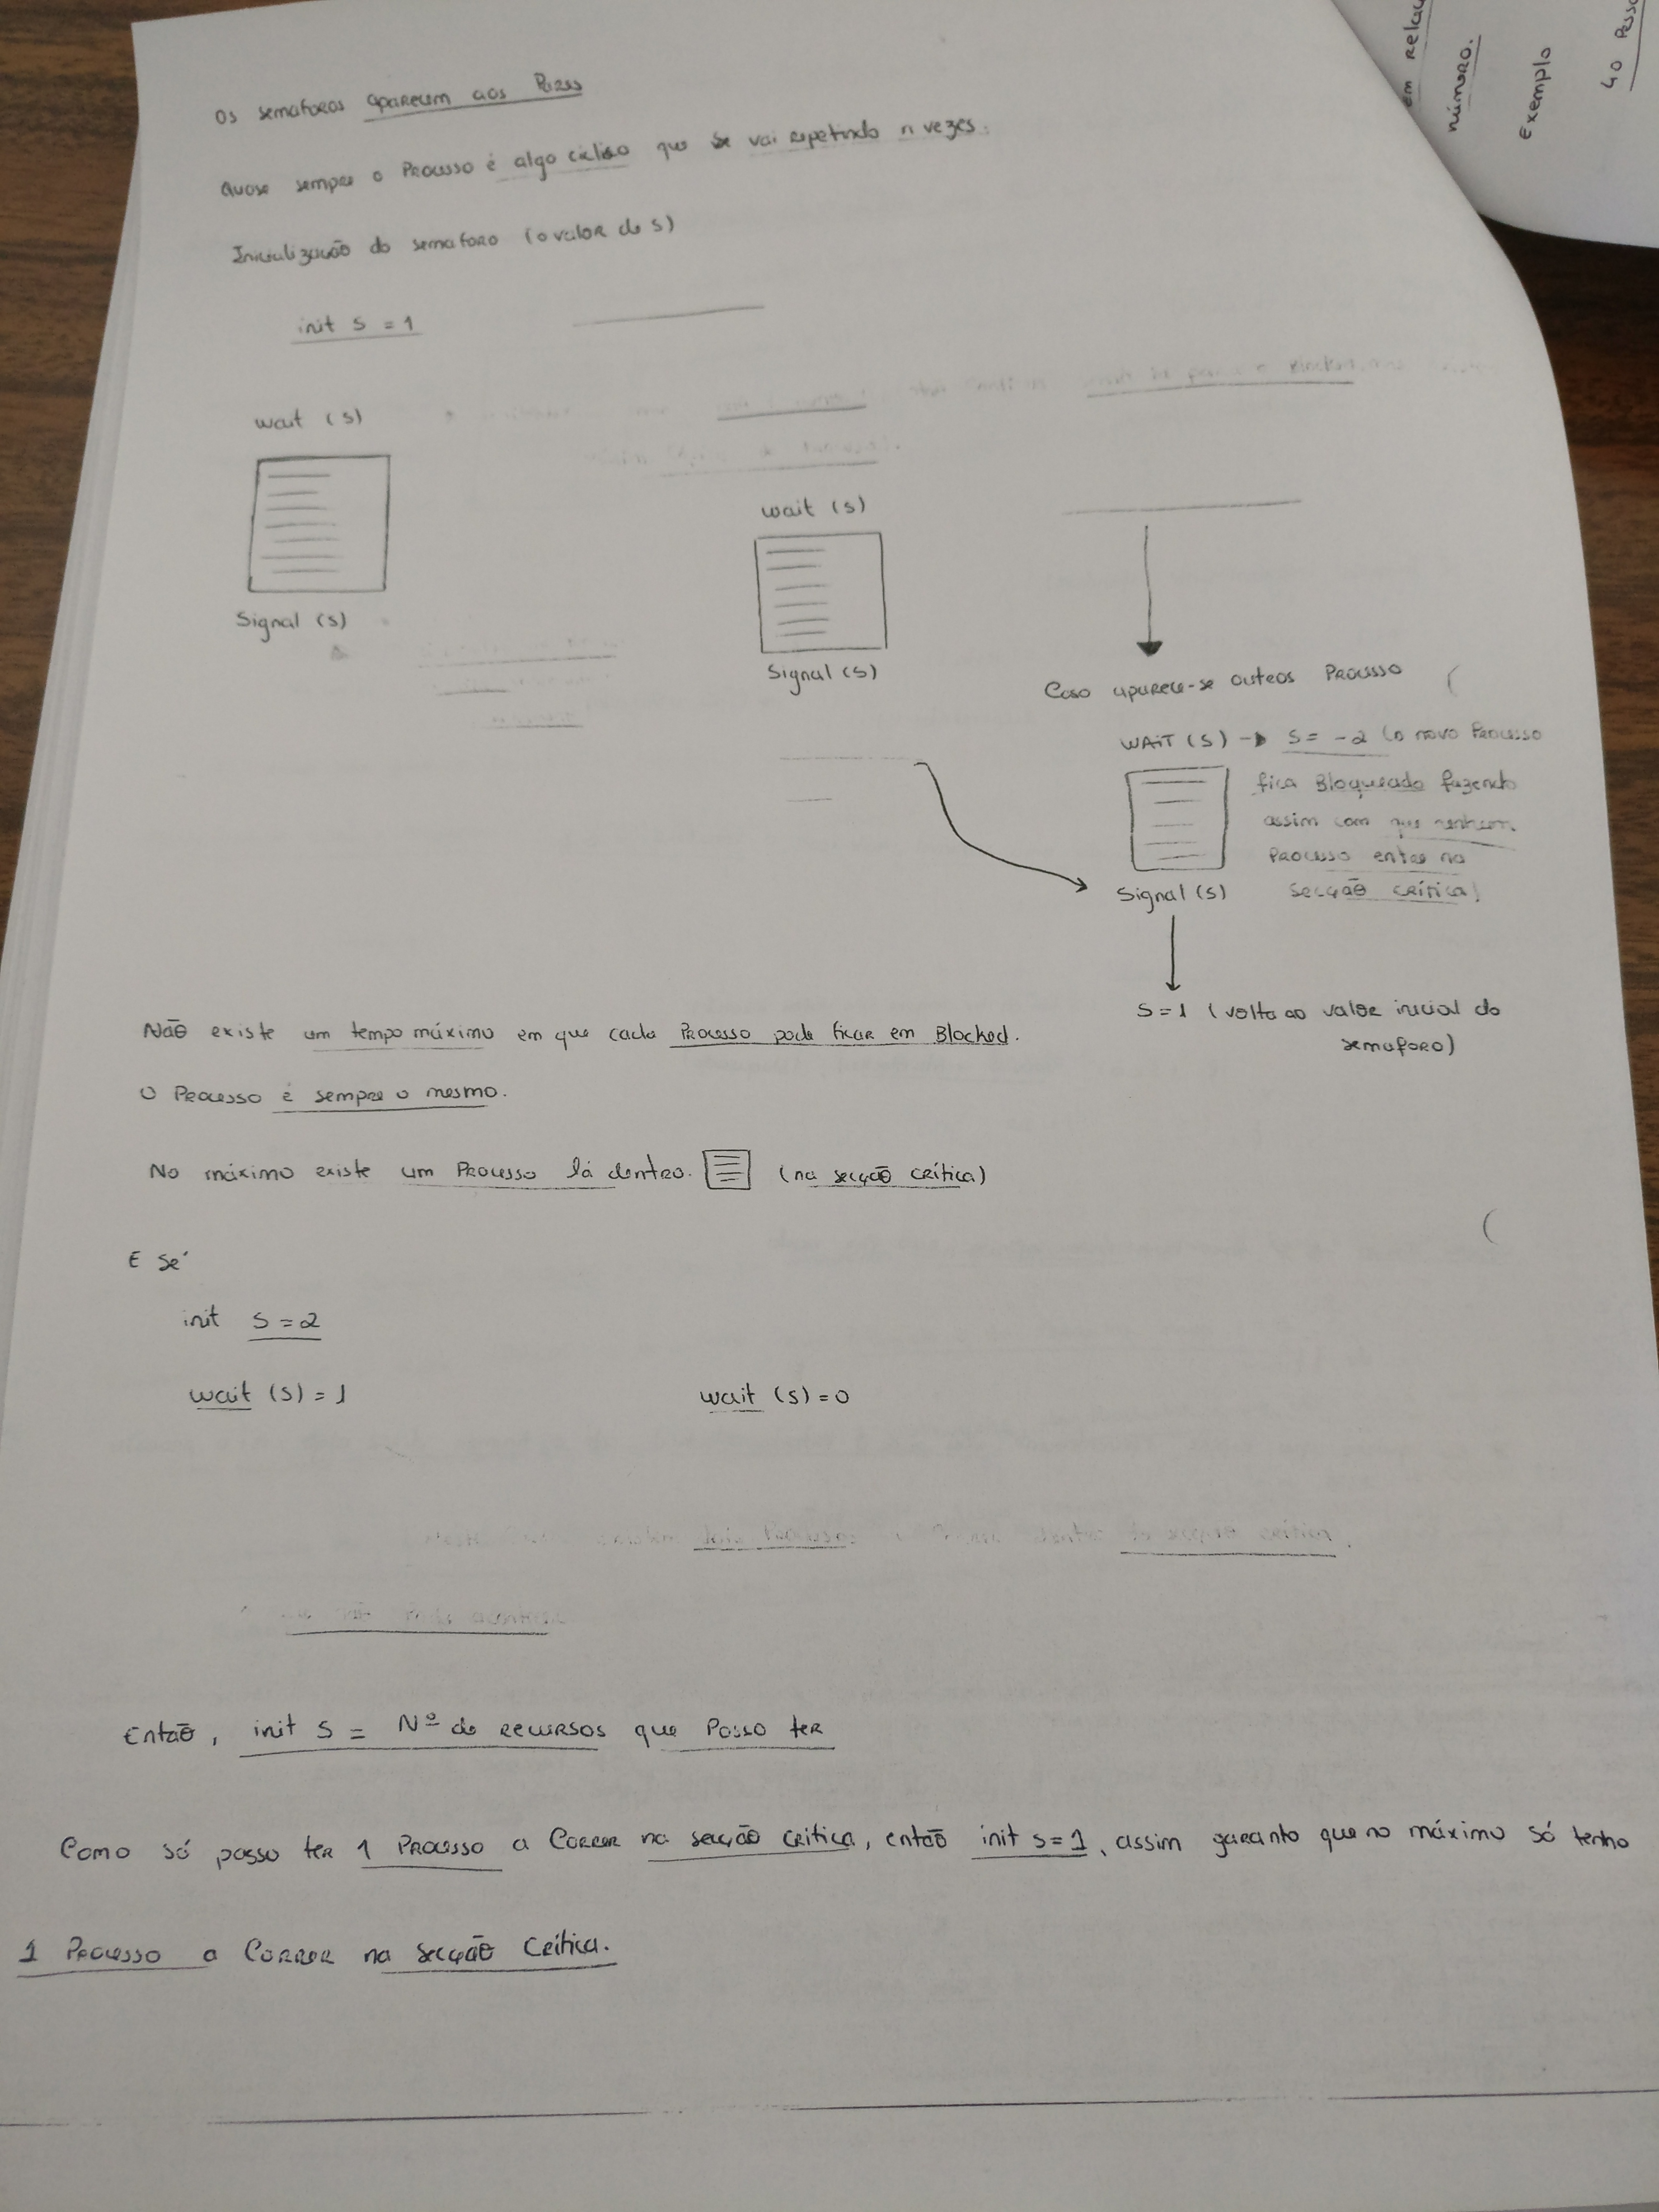 Os semaforos aparecem aos Pares
Quase sempre o Processo é algo ciclico que se vai repetindo n vezes.
Inicialização do semaforo (o valor de s)
init s = 1
wait (s)
Signal (s)
wait (s)
Signal (s)
Caso aparece-se outros Processo
WAIT (s) → s = -2 (o novo Processo
fica Bloqueado fazendo
assim com que nenhum
Processo entre na
secção crítica)
Signal (s)
s = 1 (volta ao valor inicial do
semaforo)
Não existe um tempo máximo em que cada Processo pode ficar em Blocked.
O Processo é sempre o mesmo.
No máximo existe um Processo lá dentro. (na secção crítica)
E se
init s = 2
wait (s) = 1 wait (s) = 0
dois Processos secção crítica
Então, init s = Nº de recursos que Posso ter
Como só posso ter 1 Processo a Correr na secção critica, então init s = 1, assim garanto que no máximo só tenho
1 Processo a Correr na secção Crítica.
em relaç
número.
Exemplo
40 Pesso